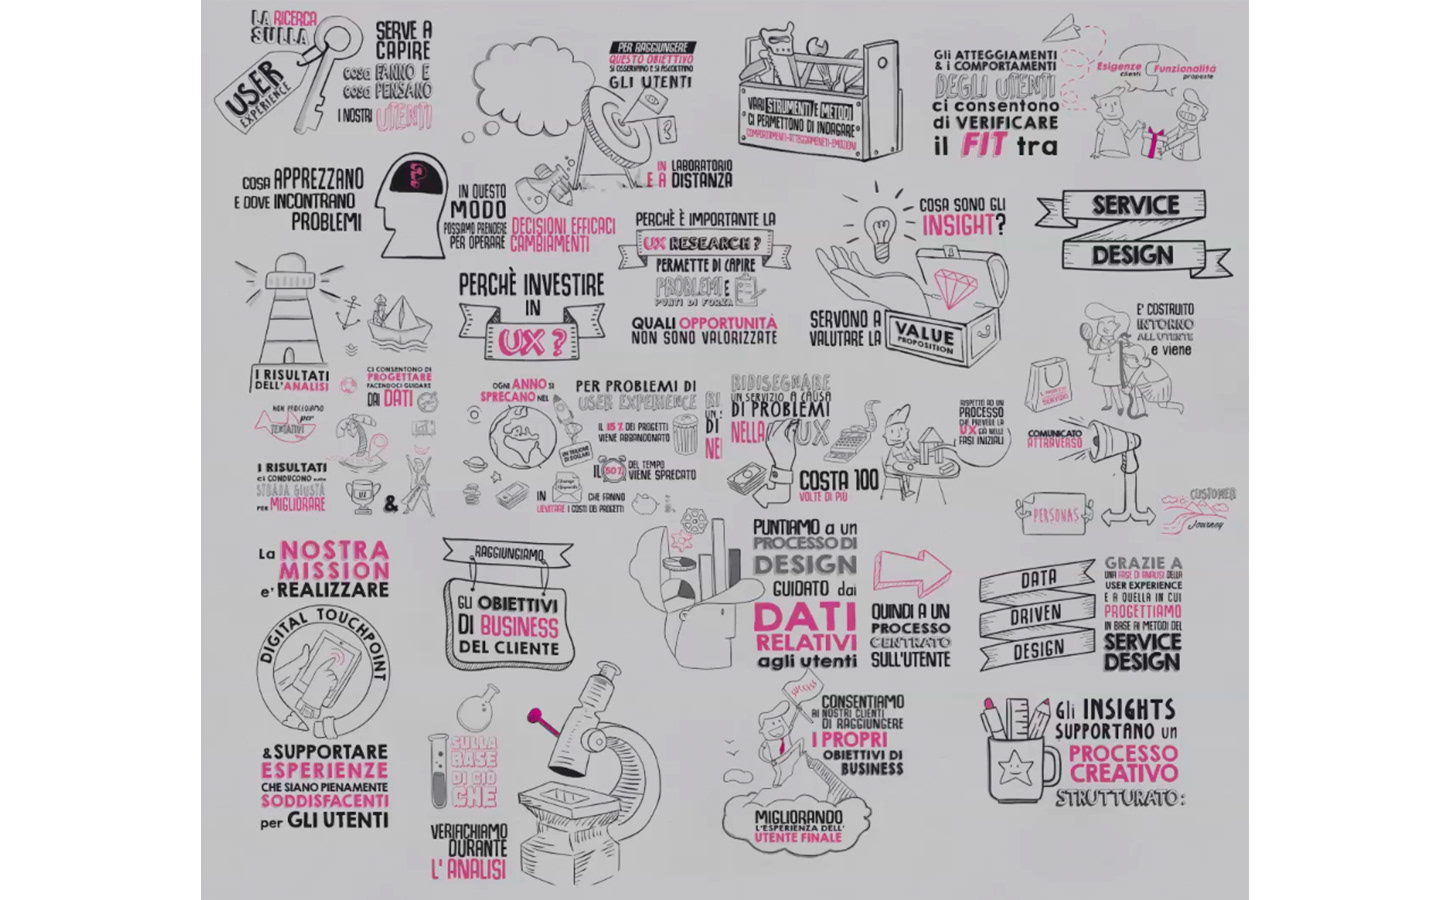 LA RICERCA
SULLA
USER
EXPERIENCE
SERVE A
CAPIRE
cosa FANNO E
cosa PENSANO
I NOSTRI UTENTI
PER RAGGIUNGERE
QUESTO OBIETTIVO
SI OSSERVANO E SI ASCOLTANO
GLI UTENTI
?
IN LABORATORIO
E A DISTANZA
VARI STRUMENTI E METODI
CI PERMETTONO DI INDAGARE
COMPORTAMENTI-ATTEGGIAMENTI-EMOZIONI
Gli ATTEGGIAMENTI
& i COMPORTAMENTI
DEGLI UTENTI
ci consentono
di VERIFICARE
il FIT tra
Esigenze
clienti
Funzionalità
proposte
COSA APPREZZANO
E DOVE INCONTRANO
PROBLEMI
IN QUESTO
MODO
POSSIAMO PRENDERE DECISIONI EFFICACI
PER OPERARE CAMBIAMENTI
PERCHÈ È IMPORTANTE LA
UX RESEARCH?
PERMETTE DI CAPIRE
PROBLEMI E
PUNTI DI FORZA
QUALI OPPORTUNITÀ
NON SONO VALORIZZATE
COSA SONO GLI
INSIGHT?
SERVONO A
VALUTARE LA
VALUE
PROPOSITION
SERVICE
DESIGN
E' COSTRUITO
INTORNO
ALL'UTENTE
e viene
SERVIZIO
COMUNICATO
ATTRAVERSO
PERSONAS
CUSTOMER
Journey
PERCHÈ INVESTIRE
IN
UX?
I RISULTATI
DELL'ANALISI
CI CONSENTONO DI
PROGETTARE
FACENDOCI GUIDARE
DAI DATI
NON PROCEDIAMO
per
TENTATIVI
I RISULTATI
ci CONDUCONO sulla
STRADA GIUSTA
PER MIGLIORARE
UX
&
OGNI ANNO SI
SPRECANO NEL
UN TRILIONE
DI DOLLARI
PER PROBLEMI DI
USER EXPERIENCE
IL 15% DEI PROGETTI
VIENE ABBANDONATO
IL 50% DEL TEMPO
VIENE SPRECATO
IN
CHE FANNO
LIEVITARE I COSTI DEI PROGETTI
RI
UN S
DI
NE
RIDISEGNARE
UN SERVIZIO A CAUSA
DI PROBLEMI
NELLA UX
COSTA 100
VOLTE DI PIÙ
RISPETTO AD UN
PROCESSO
CHE PREVEDE LA
UX GIÀ NELLE
FASI INIZIALI
La NOSTRA
MISSION
e' REALIZZARE
DIGITAL TOUCHPOINT
& SUPPORTARE
ESPERIENZE
CHE SIANO PIENAMENTE
SODDISFACENTI
per GLI UTENTI
RAGGIUNGIAMO
GLI OBIETTIVI
DI BUSINESS
DEL CLIENTE
SULLA
BASE
DI CIÒ
CHE
VERIFICHIAMO
DURANTE
L'ANALISI
PUNTIAMO a un
PROCESSO DI
DESIGN
GUIDATO dai
DATI
RELATIVI
agli utenti
QUINDI A UN
PROCESSO
CENTRATO
SULL'UTENTE
DATA
DRIVEN
DESIGN
GRAZIE A
UNA FASE DI ANALISI DELLA
USER EXPERIENCE
E A QUELLA IN CUI
PROGETTIAMO
IN BASE AI METODI DEL
SERVICE
DESIGN
SUCCESS
CONSENTIAMO
AI NOSTRI CLIENTI
DI RAGGIUNGERE
I PROPRI
OBIETTIVI DI
BUSINESS
MIGLIORANDO
L'ESPERIENZA DELL'
UTENTE FINALE
Gli INSIGHTS
SUPPORTANO un
PROCESSO
CREATIVO
STRUTTURATO: